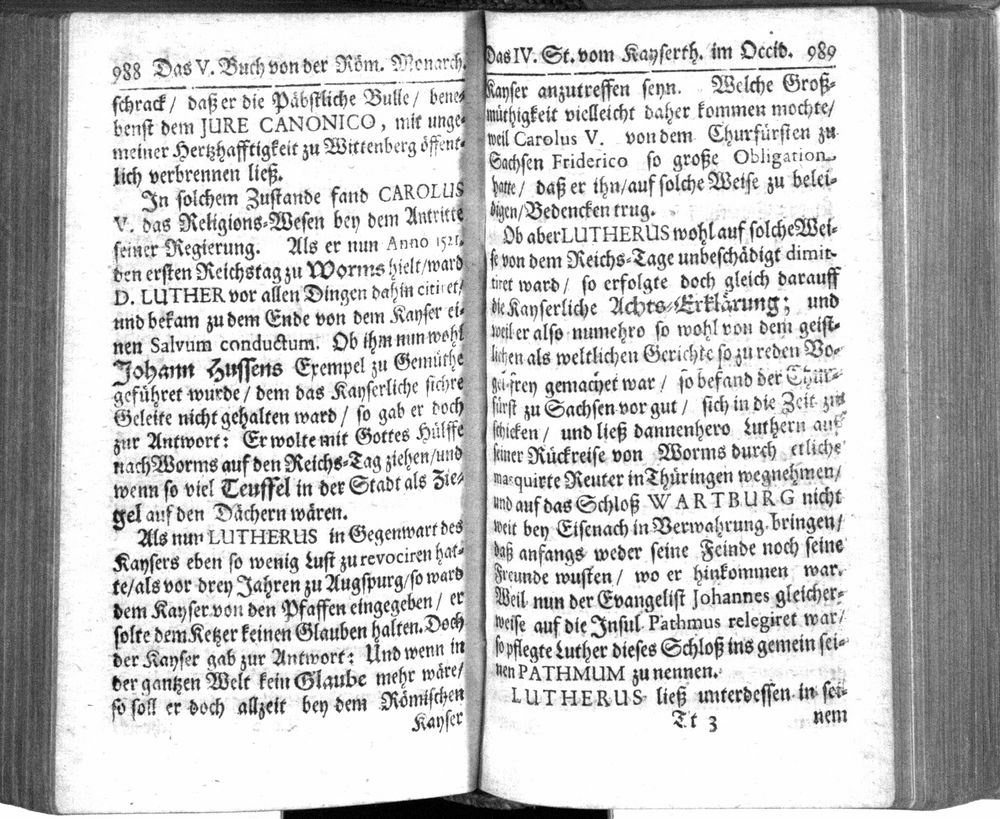 988 Das V. Buch von der Röm. Monarch.
schrack / daß er die Päbstliche Bulle / bene-
benst dem JURE CANONICO, mit unge-
meiner Hertzhafftigkeit zu Wittenberg öffent-
lich verbrennen ließ.
In solchem Zustande fand CAROLUS
V. das Religions-Wesen bey dem Antritte
seiner Regierung. Als er nun Anno 1521.
den ersten Reichstag zu Worms hielt / ward
D. LUTHER vor allen Dingen dahin citiret /
und bekam zu dem Ende von dem Kayser ei-
nen Salvum conductum. Ob ihm nun wohl
Johann Hussens Exempel zu Gemüthe
geführet wurde / dem das Kayserliche sichre
Geleite nicht gehalten ward / so gab er doch
zur Antwort: Er wolte mit Gottes Hülffe
nach Worms auf den Reichs-Tag ziehen / und
wenn so viel Teuffel in der Stadt als Zie-
gel auf den Dächern wären.
Als nun LUTHERUS in Gegenwart des
Kaysers eben so wenig Lust zu revociren hat-
te / als vor drey Jahren zu Augspurg / so ward
dem Kayser von den Pfaffen eingegeben / er
solte dem Ketzer keinen Glauben halten. Doch
der Kayser gab zur Antwort: Und wenn in
der gantzen Welt kein Glaube mehr wäre /
so soll er doch allzeit bey dem Römischen
Kayser
Das IV. St. vom Kayserth. im Occid. 989
Kayser anzutreffen seyn. Welche Groß-
müthigkeit vielleicht daher kommen mochte /
weil Carolus V. von dem Churfürsten zu
Sachsen Friderico so große Obligation
hatte / daß er ihn / auf solche Weise zu belei-
digen / Bedencken trug.
Ob aber LUTHERUS wohl auf solche Wei-
se von dem Reichs-Tage unbeschädigt dimit-
tiret ward / so erfolgte doch gleich darauff
die Kayserliche Achts-Erklärung; und
weil er also nunmehro so wohl von dem geist-
lichen als weltlichen Gerichte so zu reden Vo-
gel-frey gemachet war / so befand der Chur-
fürst zu Sachsen vor gut / sich in die Zeit zu
schicken / und ließ dannenhero Luthern auf
seiner Rückreise von Worms durch etliche
masquirte Reuter in Thüringen wegnehmen /
und auf das Schloß WARTBURG nicht
weit bey Eisenach in Verwahrung bringen /
daß anfangs weder seine Feinde noch seine
Freunde wusten / wo er hinkommen war.
Weil nun der Evangelist Johannes gleicher-
weise auf die Insul Pathmus relegiret war /
so pflegte Luther dieses Schloß ins gemein sei-
nen PATHMUM zu nennen.
LUTHERUS ließ unterdessen in sei-
Tt 3 nem